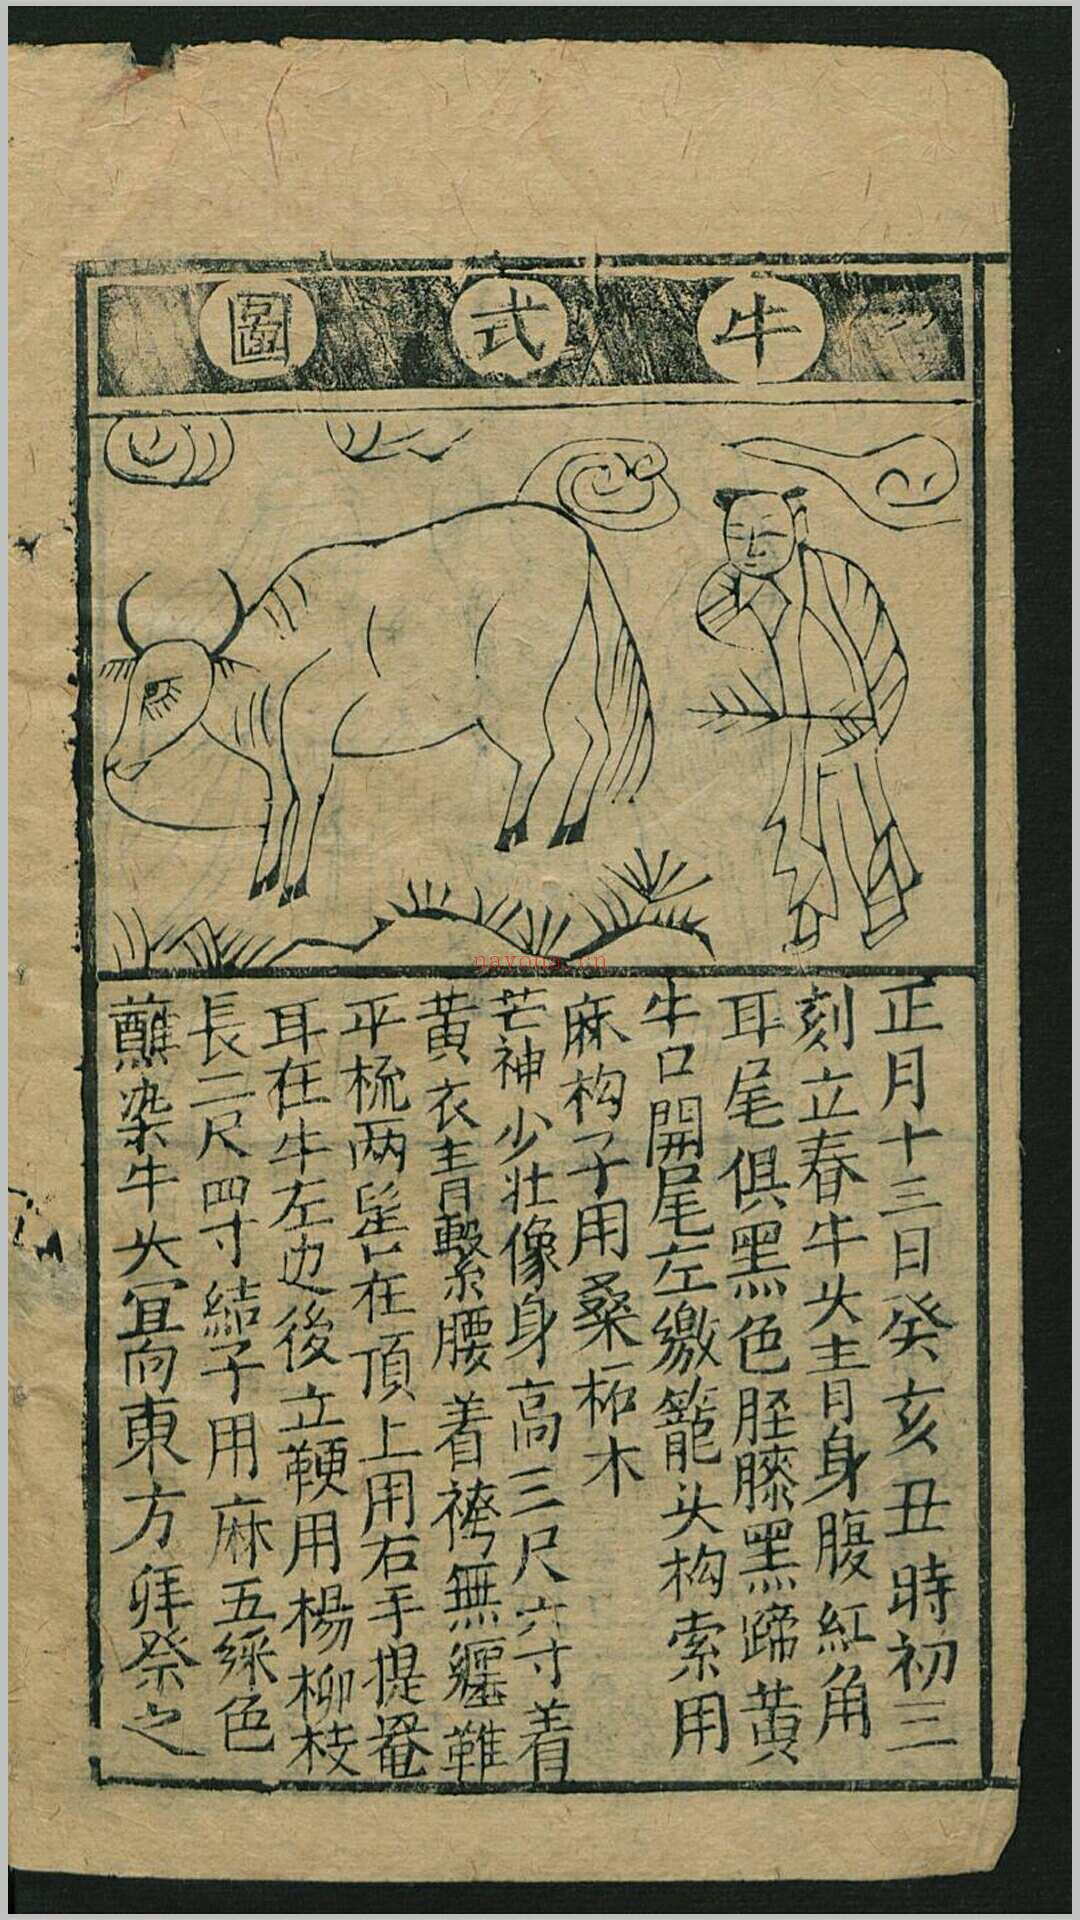 牛式圖
正月十三日癸亥丑時初三
刻立春牛头青身腹紅角
耳尾俱黑色胫膝黑蹄黄
牛口開尾左繳籠头构索用
麻构子用桑柘木
芒神少壮像身高三尺六寸着
黄衣青繫腰着袴無纏難
平梳两髻在頂上用右手提罨
耳在牛左边後立鞭用楊柳枝
長二尺四寸結子用麻五綵色
蘸染牛头冝向東方拜祭之
nayona.cn